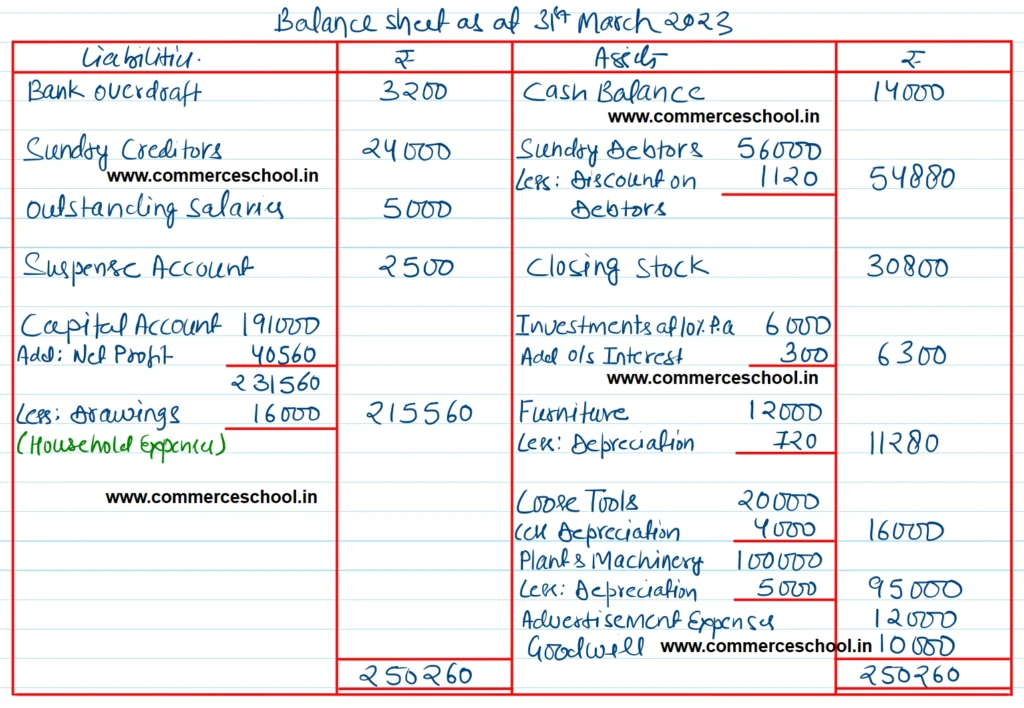 Balance sheet as at 31st March 2023
Liabilities. ₹ Assets ₹
Bank overdraft 3200 Cash Balance 14000
www.commerceschool.in
Sundry Creditors 24000 Sundry Debtors 56000
www.commerceschool.in Less: Discount on 1120 54880
Outstanding Salaries 5000 Debtors
Suspense Account 2500 Closing Stock 30800
Capital Account 191000 Investments at 10% P.a 6000
Add: Net Profit 40560 Add o/s Interest 300 6300
231560 www.commerceschool.in
Less: Drawings 16000 215560 Furniture 12000
(Household Expenses) Less: Depreciation 720 11280
www.commerceschool.in Loose Tools 20000
Less Depreciation 4000 16000
Plant & Machinery 100000
Less: Depreciation 5000 95000
Advertisement Expenses 12000
Goodwill www.commerceschool.in 10000
250260 250260